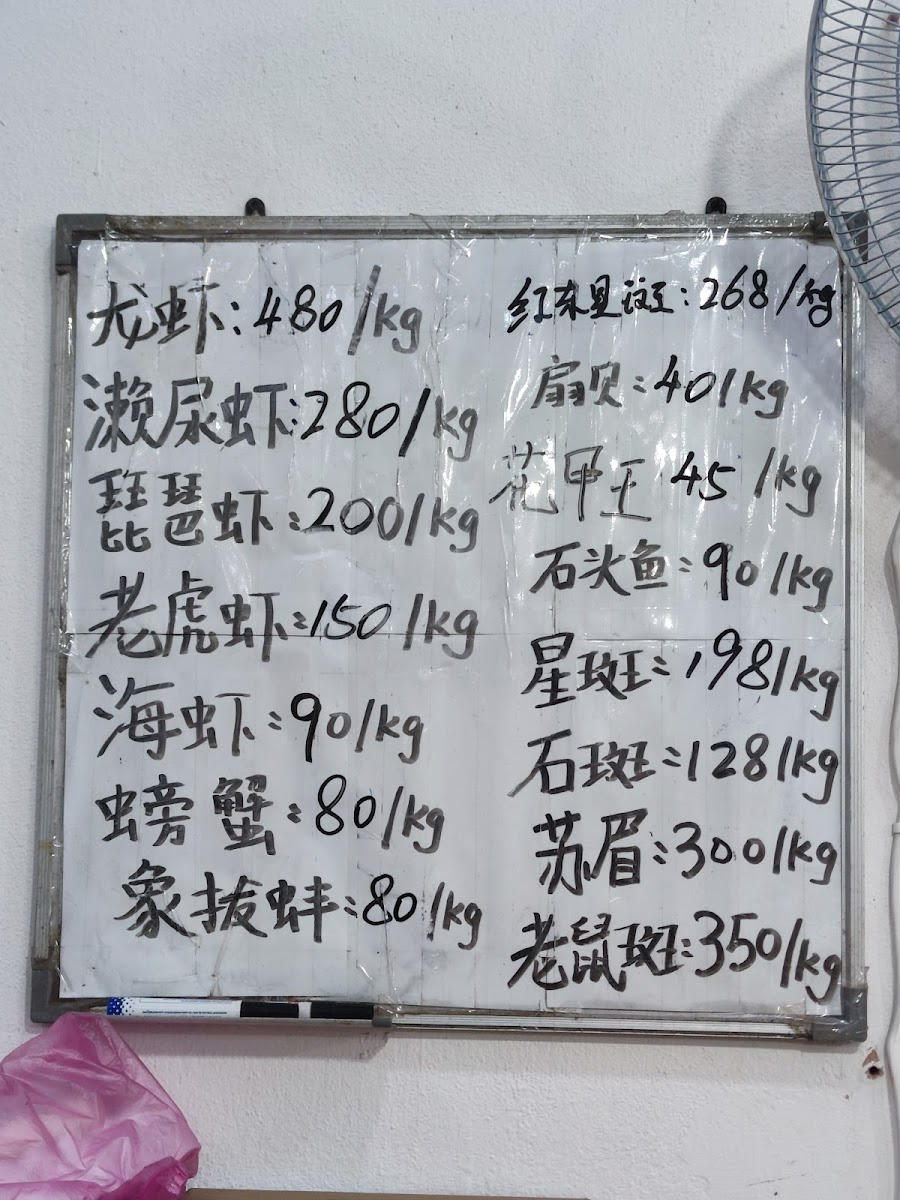 龙虾:480/kg
濑尿虾:280/kg
琵琶虾:200/kg
老虎虾:150/kg
海虾:90/kg
螃蟹:80/kg
象拔蚌:80/kg
红东星斑:268/kg
扇贝:40/kg
花甲王 45/kg
石头鱼:90/kg
星斑:198/kg
石斑:128/kg
苏眉:300/kg
老鼠斑:350/kg